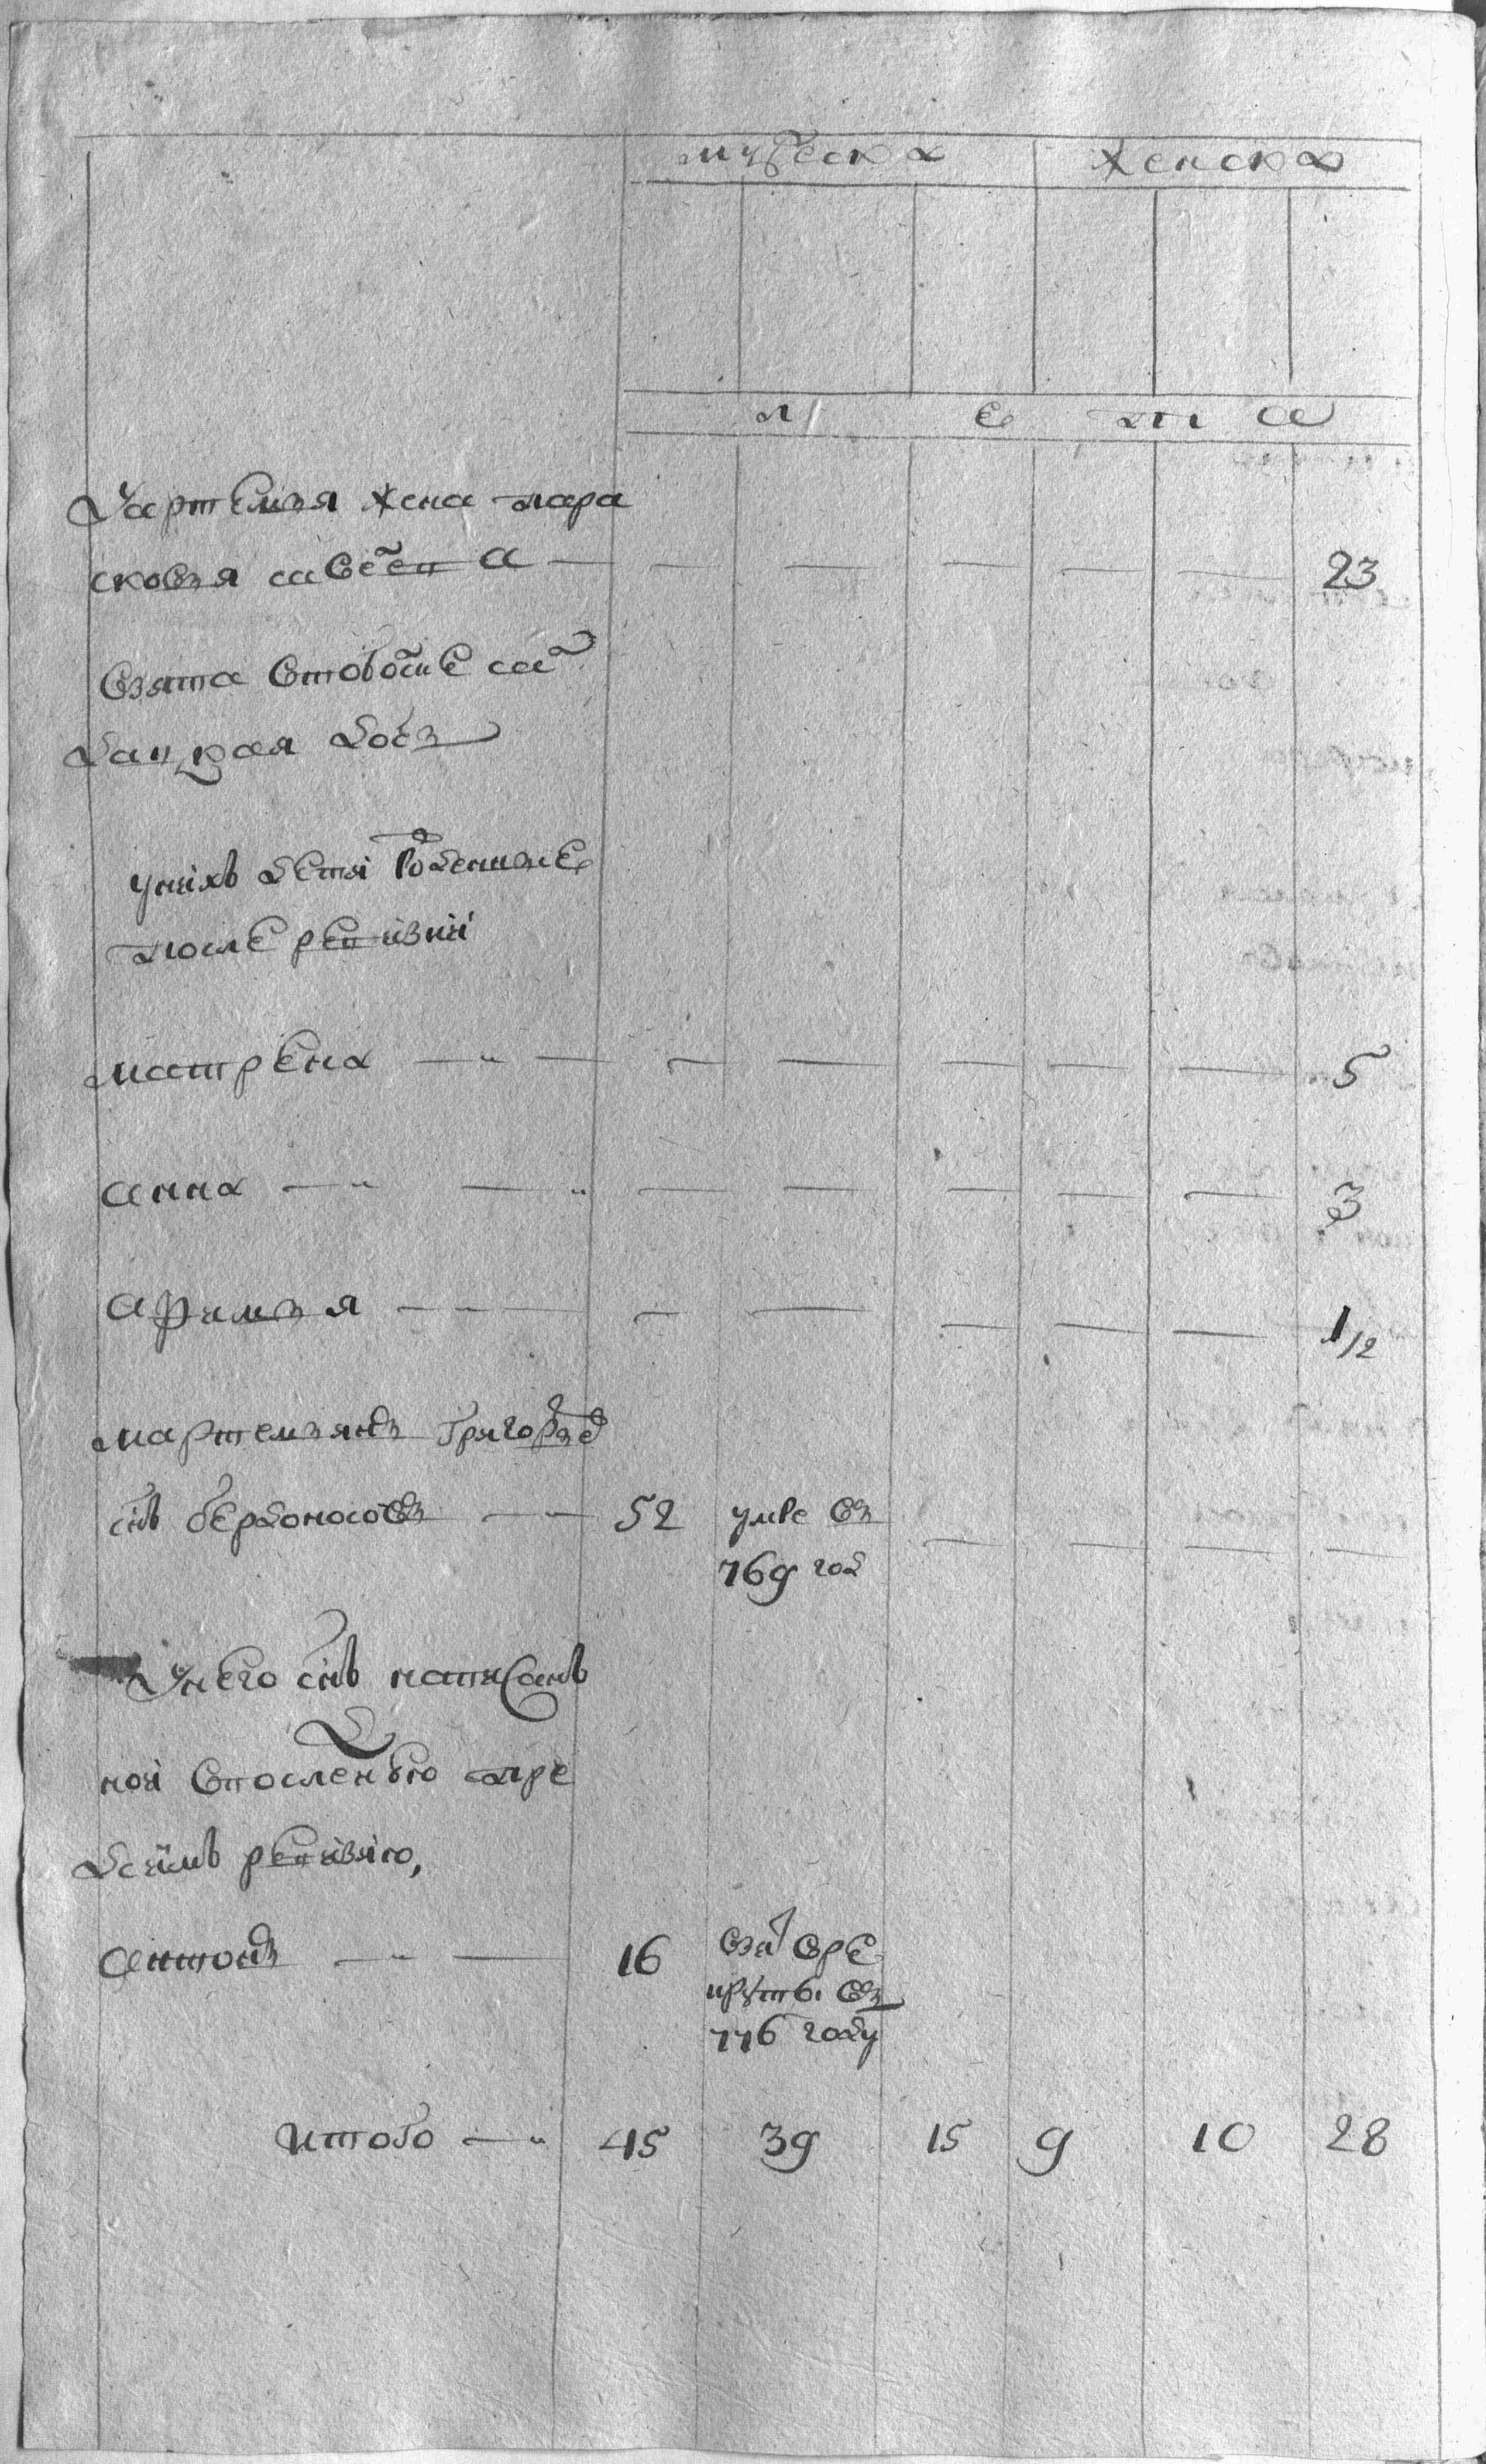 мужеска женска
л е т а
Уартемья жена пара
сковья савѣева — — — — — — 23
взята втовожже са
дацкая дочь
унихъ дети рожденные
после ревизии
матрена — — — — — — 5
анна — — — — — — 3
афимья — — — — — — 1/2
мартемьянъ григорьев
снъ бердоносовъ — 52 умре въ — — — —
769 год
Унего снъ написанъ
ной впоследнюю пре
дсимъ ревизию,
антонъ — 16 взят вре
круты въ
776 году
итого — 45 39 15 9 10 28